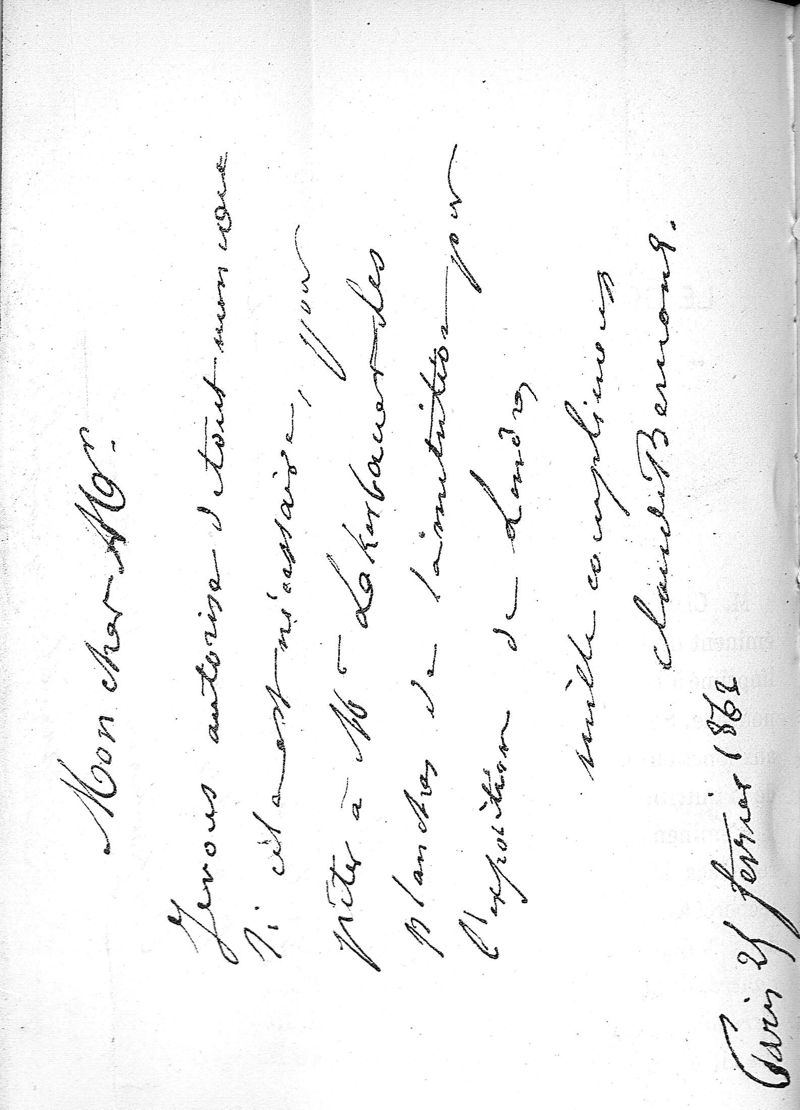 Mon cher Mr.
Je vous autorise de tout mon cœur
si cela est nécessaire, pour
prêter à Mr Lakerbauer des
planches de l'institution pour
l'exposition de Londres
mille complimens
Claude Bernard.
Paris 25 fevrier 1862